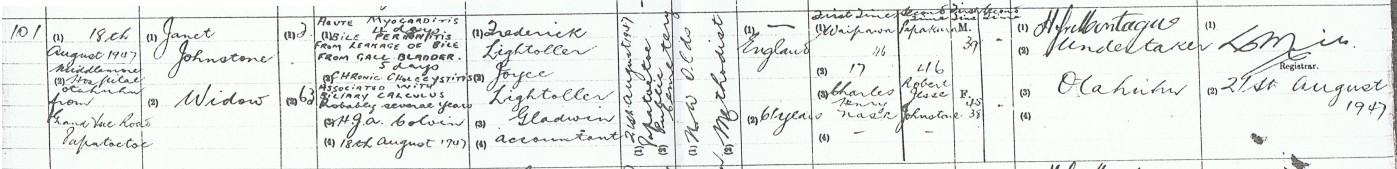 101
(1) 18th
August 1947
Middlemore
(2) Hospital
Otahuhu
from
Land Vue Road
Papatoetoe
(1) Janet
Johnstone
(2) Widow
(1)
(2) 63
ACUTE MYOCARDITIS
4 days
(1) BILE PERITONITIS
FROM LEAKAGE OF BILE
FROM GALL BLADDER.
5 days
(2) CHRONIC CHOLECYSTITIS
ASSOCIATED WITH
BILIARY CALCULUS
Probably several years
(3) H.G.A. Colvin
(4) 18th August 1947
(1) Frederick
Lightoller
(2) Joyce
Lightoller
(3) Gladwin
(4) accountant
(1) 21st August 1947
Papatoetoe
(2) Public
Cemetery
(1) N.W. Olds
(2) Methodist
(1)
England
(2) 61 years
First Time
Second Time
First Time
Second Time
(1) Waipawa
Papakura
46
(2) 17
46
(3) Charles
Henry
Nash
Robert
Jesse
Johnstone
(4) - -
M.
39
F.
45
38
(1) Montague
(2) Undertaker
(3) Otahuhu
(4)
(1)
Registrar.
(2) 21st August
1947